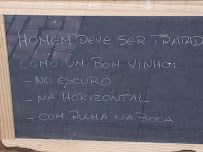 HOMEM DEVE SER TRATADO
COMO UM BOM VINHO:
- NO ESCURO
- NA HORIZONTAL
- COM ROLHA NA BOCA